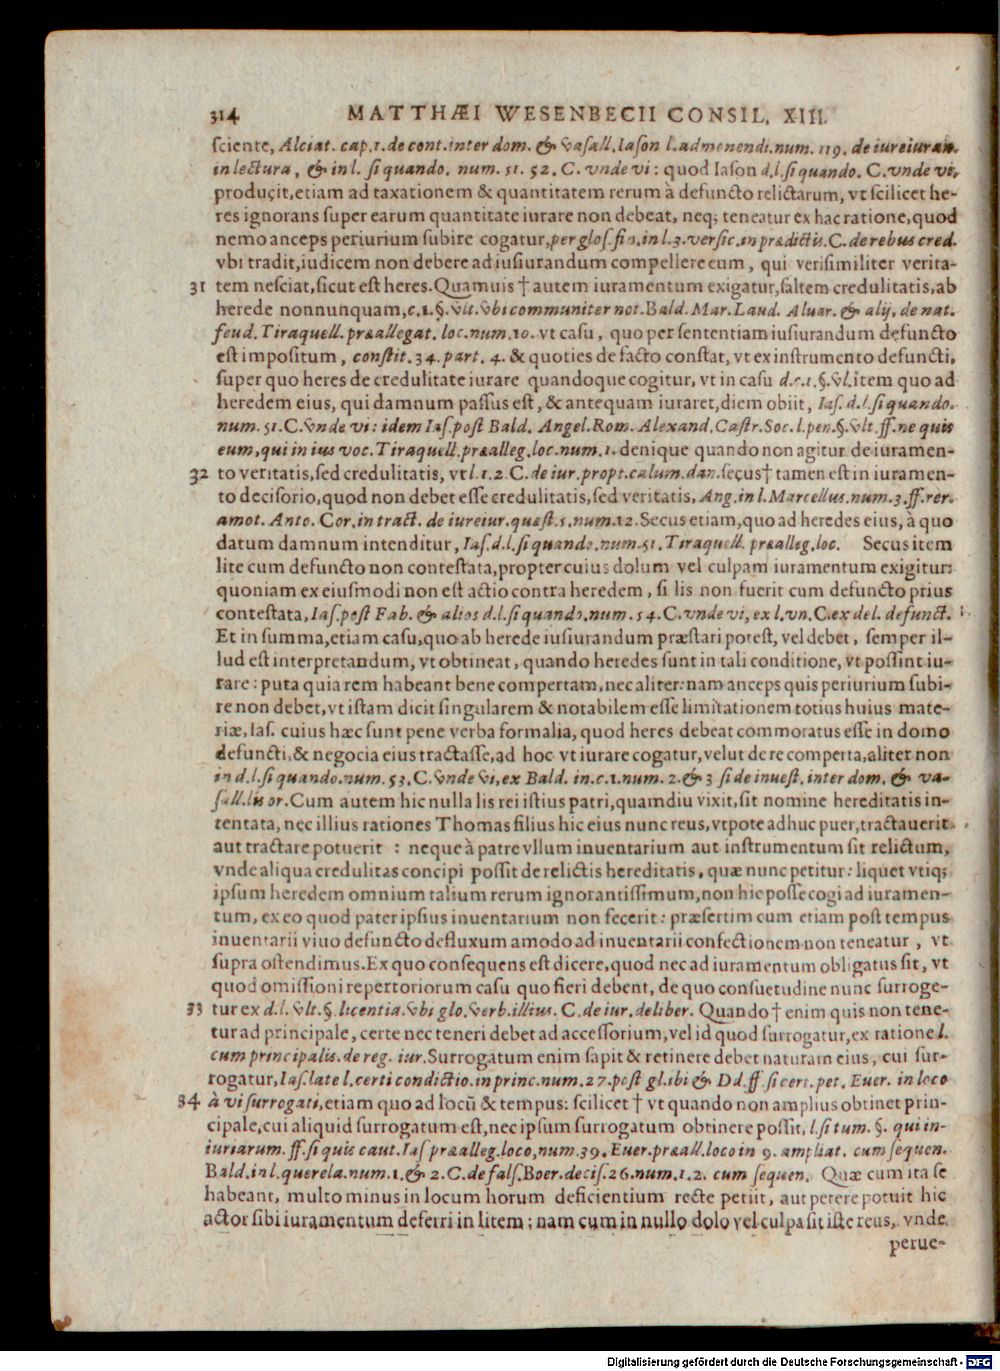 314 MATTHÆI WESENBECII CONSIL. XIII.
ſciente, Alciat. cap. 1. de cont. inter dom. & vaſall. Iaſon l. admonendi. num. 119. de iureiuran.
in lectura, & in l. ſi quando. num. 51. 52. C. vnde vi: quod Iaſon d. l. ſi quando. C. vnde vi,
produçit, etiam ad taxationem & quantitatem rerum à defuncto relictarum, vt ſcilicet he-
res ignorans ſuper earum quantitate iurare non debeat, neq; teneatur ex hac ratione, quod
nemo anceps periurium ſubire cogatur, per gloſ. fin. in l. 3. verſic. in prædictis. C. de rebus cred.
vbi tradit, iudicem non debere ad iuſiurandum compellere eum, qui veriſimiliter verita-
31 tem neſciat, ſicut eſt heres. Quamuis † autem iuramentum exigatur, ſaltem credulitatis, ab
herede nonnunquam, c. 1. §. vlt. vbi communiter not. Bald. Mar. Laud. Aluar. & alij, de nat.
feud. Tiraquell. præallegat. loc. num. 10. vt caſu, quo per ſententiam iuſiurandum defuncto
eſt impoſitum, conſtit. 34. part. 4. & quoties de facto conſtat, vt ex inſtrumento defuncti,
ſuper quo heres de credulitate iurare quandoque cogitur, vt in caſu d. c. 1. §. vl. item quo ad
heredem eius, qui damnum paſſus eſt, & antequam iuraret, diem obiit, Iaſ. d. l. ſi quando.
num. 51. C. vnde vi: idem Iaſ. poſt Bald. Angel. Rom. Alexand. Caſtr. Soc. l. pen. §. vlt. ff. ne quis
eum, qui in ius voc. Tiraquell. præalleg. loc. num. 1. denique quando non agitur de iuramen-
32 to veritatis, ſed credulitatis, vt l. 1. 2. C. de iur. propt. calum. dan. ſecus † tamen eſt in iuramen-
to deciſorio, quod non debet eſſe credulitatis, ſed veritatis, Ang. in l. Marcellus. num. 3. ff. rer.
amot. Anto. Cor. in tract. de iureiur. quæſt. 5. num. 12. Secus etiam, quo ad heredes eius, à quo
datum damnum intenditur, Iaſ. d. l. ſi quando. num. 51. Tiraquell. præalleg. loc. Secus item
lite cum defuncto non conteſtata, propter cuius dolum vel culpam iuramentum exigitur:
quoniam ex eiuſmodi non eſt actio contra heredem, ſi lis non fuerit cum defuncto prius
conteſtata, Iaſ. poſt Fab. & alios d. l. ſi quando. num. 54. C. vnde vi, ex l. vn. C. ex del. defunct.
Et in ſumma, etiam caſu, quo ab herede iuſiurandum præſtari poteſt, vel debet, ſemper il-
lud eſt interpretandum, vt obtineat, quando heredes ſunt in tali conditione, vt poſſint iu-
rare: puta quia rem habeant bene compertam, nec aliter: nam anceps quis periurium ſubi-
re non debet, vt iſtam dicit ſingularem & notabilem eſſe limitationem totius huius mate-
riæ, Iaſ. cuius hæc ſunt pene verba formalia, quod heres debeat commoratus eſſe in domo
defuncti, & negocia eius tractaſſe, ad hoc vt iurare cogatur, velut de re comperta, aliter non
in d. l. ſi quando. num. 53. C. vnde vi, ex Bald. in. c. 1. num. 2. & 3 ſi de inueſt. inter dom. & va-
ſall. lis or. Cum autem hic nulla lis rei iſtius patri, quamdiu vixit, ſit nomine hereditatis in-
tentata, nec illius rationes Thomas filius hic eius nunc reus, vtpote adhuc puer, tractauerit
aut tractare potuerit : neque à patre vllum inuentarium aut inſtrumentum ſit relictum,
vnde aliqua credulitas concipi poſſit de relictis hereditatis, quæ nunc petitur: liquet vtiq;
ipſum heredem omnium talium rerum ignorantiſſimum, non hic poſſe cogi ad iuramen-
tum, ex eo quod pater ipſius inuentarium non fecerit: præſertim cum etiam poſt tempus
inuentarii viuo defuncto defluxum amodo ad inuentarii confectionem non teneatur, vt
ſupra oſtendimus. Ex quo conſequens eſt dicere, quod nec ad iuramentum obligatus ſit, vt
quod omiſſioni repertoriorum caſu quo fieri debent, de quo conſuetudine nunc ſurroge-
33 tur ex d. l. vlt. §. licentia. vbi glo. verb. illius. C. de iur. deliber. Quando † enim quis non tene-
tur ad principale, certe nec teneri debet ad acceſſorium, vel id quod ſurrogatur, ex ratione l.
cum principalis. de reg. iur. Surrogatum enim ſapit & retinere debet naturam eius, cui ſur-
rogatur, Iaſ. late l. certi condictio. in princ. num. 27. poſt gl. ibi & Dd. ff. ſi cert. pet. Euer. in loco
34 à vi ſurrogati, etiam quo ad locũ & tempus: ſcilicet † vt quando non amplius obtinet prin-
cipale, cui aliquid ſurrogatum eſt, nec ipſum ſurrogatum obtinere poſſit, l. ſi tum. §. qui in-
iuriarum. ff. ſi quis caut. Iaſ præalleg. loco, num. 39. Euer. præall. loco in 9. ampliat. cum ſequen.
Bald. in l. querela. num. 1. & 2. C. de falſ. Boer. deciſ. 26. num. 1. 2. cum ſequen. Quæ cum ita ſe
habeant, multo minus in locum horum deficientium recte petiit, aut petere potuit hic
actor ſibi iuramentum deferri in litem; nam cum in nullo dolo vel culpa ſit iſte reus, vnde
perue-
Digitalisierung gefördert durch die Deutsche Forschungsgemeinschaft - DFG